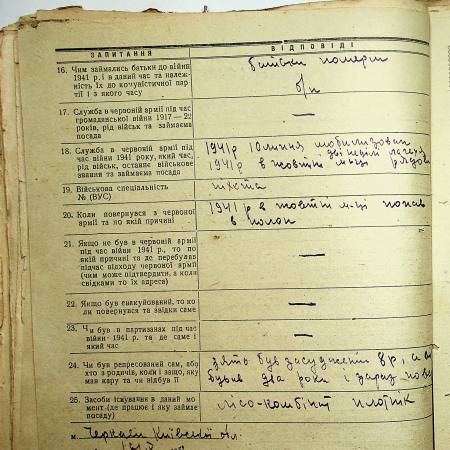 ЗАПИТАННЯ ВІДПОВІДІ
16. Чим займались батьки до війни
1941 р. і в даний час та належ-
ність їх до комуністичної пар-
тії і з якого часу
батьки померли
б/п
17. Служба в червоній армії під час
громадянської війни 1917 — 22
років, рід військ та займаєма
посада
—
18. Служба в червоній армії під
час війни 1941 року, який час,
рід військ, останнє військове
звання та займаєма посада
1941 р 10 липня мобілізован
дві неділі
1941 р в жовтні м-ці рядов
19. Військова спеціальність
№ (ВУС)
піхота
20. Коли повернувся з червоної
армії та по якій причині
1941 р в жовтні м-ці попав
в полон
21. Якщо не був в червоній армії
під час війни 1941 р., то по
якій причині та де перебував
підчас відходу червоної армії
(чим може підтвердити, а коли
свідками то їх адреса)
—
22. Якщо був евакуйований, то ко
ли повернувся та звідки саме
—
23. Чи був в партизанах під час
війни 1941 р. та де саме і
який час
—
24. Чи був репресований сам, або
хто з родичів, коли і защо, яку
мав кару та чи відбув її
зять був засуджений 8 р, а
був два роки і зараз
25. Засоби існування в даний мо
мент (де працює і яку займає
посаду)
лісо-комбінат плотнік
м. Черкаси Київської обл.